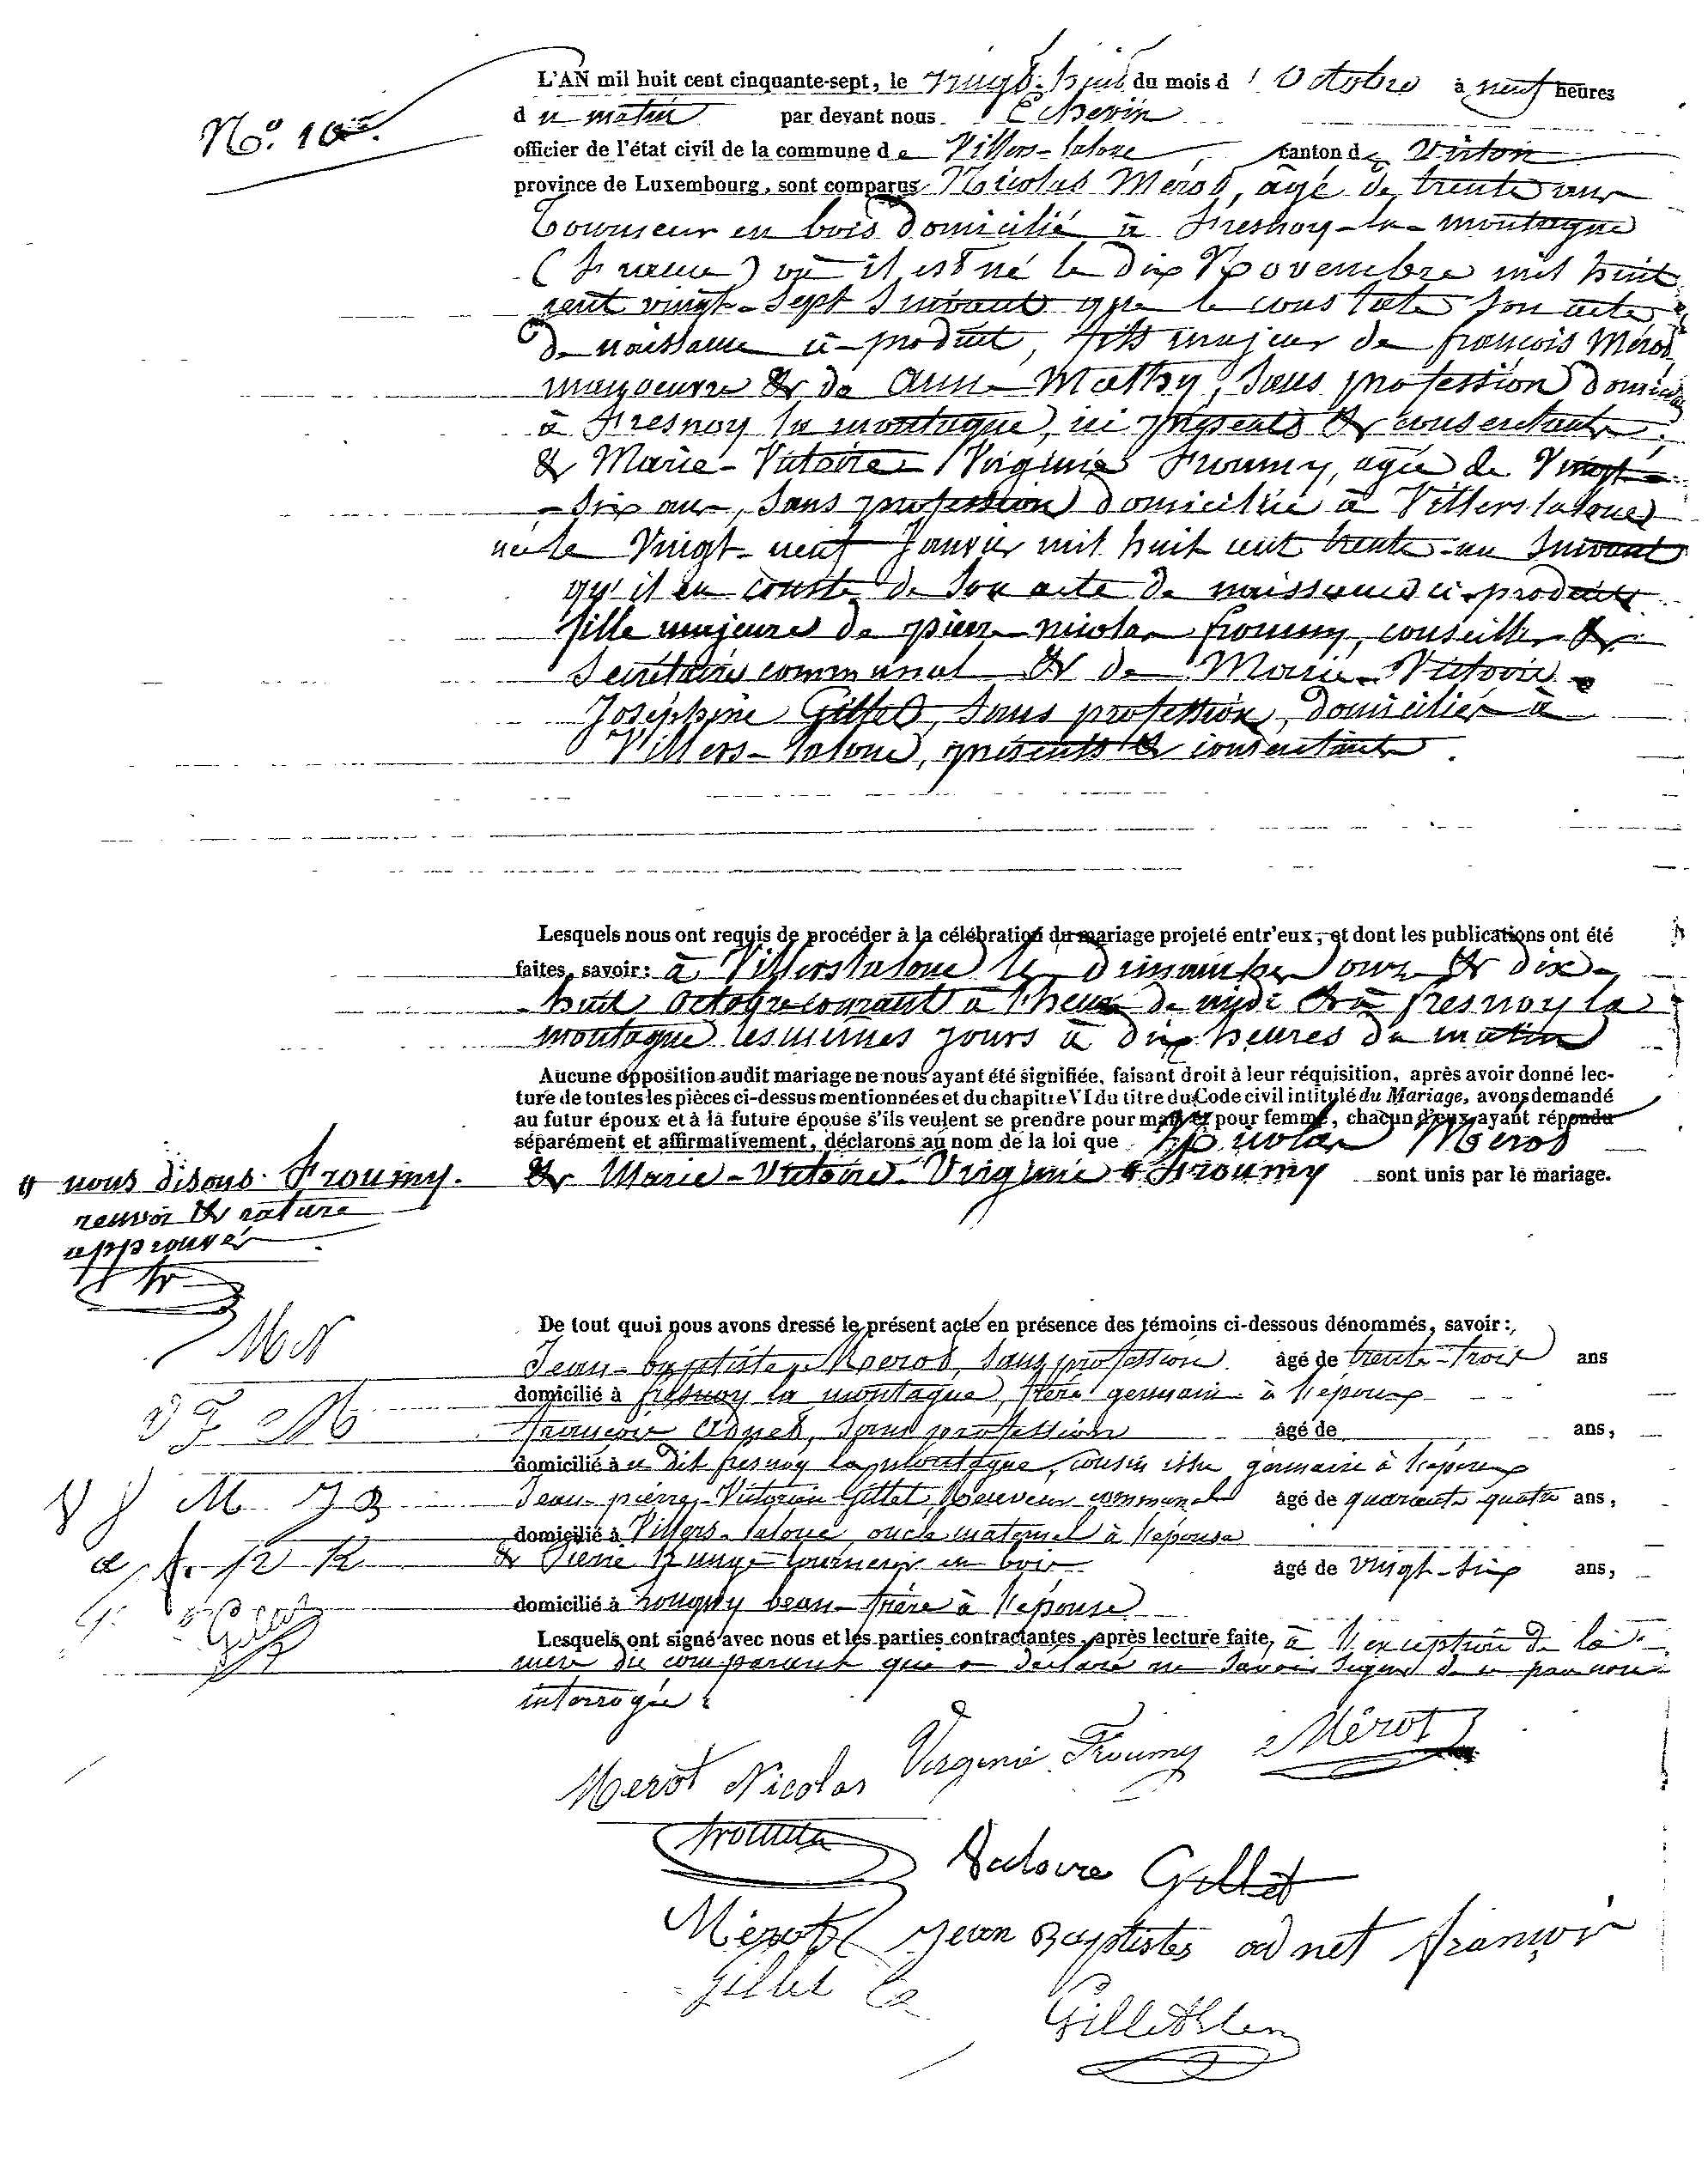 N.º 10
L'AN mil huit cent cinquante-sept, le vingt-huit du mois d' Octobre à neuf heures
du matin par devant nous Echevin
officier de l'état civil de la commune de Villers-laloue, canton de Virton
province de Luxembourg, sont comparus Nicolas Mérot, âgé de trente ans
Tourneur en bois domicilié à Fresnoy-la-montagne
(France) où il est né le dix Novembre mil huit
cent vingt-sept suivant que le constate son acte
de naissance ci-produit, fils majeur de françois Mérot
manoeuvre & de Anne Mathy, sans profession domiciliés
à Fresnoy la montagne, ici présents & consentants
& Marie-Victoire Virginie Froumy, agée de Vingt-
-six ans, sans profession domiciliée à Villers laloue
née le Vingt-neuf Janvier mil huit cent trente-un suivant
qu'il en conste de son acte de naissance ci-produit
fille majeure de pierre-nicolas froumy, conseiller &
secrétaire communal & de Marie-Victoire
Joséphine Gillet, sans profession, domiciliés à
Villers-laloue, présents & consentants.
Lesquels nous ont requis de procéder à la célébration du mariage projeté entr'eux, et dont les publications ont été
faites, savoir: à Villers laloue les dimanches onze & dix-
-huit octobre courant à l'heure de midi & à fresnoy la
montagne les mêmes jours à dix heures du matin
Aucune opposition audit mariage ne nous ayant été signifiée, faisant droit à leur réquisition, après avoir donné lec-
ture de toutes les pièces ci-dessus mentionnées et du chapitre VI du titre du Code civil intitulé du Mariage, avons demandé
au futur époux et à la future épouse s'ils veulent se prendre pour mari et pour femme, chacun d'eux ayant répondu
séparément et affirmativement, déclarons au nom de la loi que Nicolas Mérot
& Marie-Victoire-Virginie Froumy sont unis par le mariage.
nous disons Froumy.
renvoi & rature
approuvés
fr
M N
V F M
De tout quoi nous avons dressé le présent acte en présence des témoins ci-dessous dénommés, savoir:
Jean-baptiste Merot, sans profession âgé de trente-trois ans
domicilié à fresnoy la montagne, frère germain à l'époux
françois Adnet, sans profession âgé de ans,
domicilié à u dit fresnoy la montagne, cousin issu germain à l'époux
Jean-pierre-Victorin Gillet, Receveur communal âgé de quarante quatre ans,
domicilié à Villers-laloue, oncle maternel à l'épouse
& Pierre tourneur en bois âgé de vingt-six ans,
domicilié à beau-frère à l'épouse
V G M J B
a f.
G
Lesquels ont signé avec nous et les parties contractantes, après lecture faite, à l'exception de la
mère du comparant qui a déclaré ne savoir signer de ce par nous
interrogée.
Merot Nicolas Virginie Froumy Mérot
froumy
Victoire Gillet
Mérot Jean Baptistes adnet françois
Gillet
Gillet